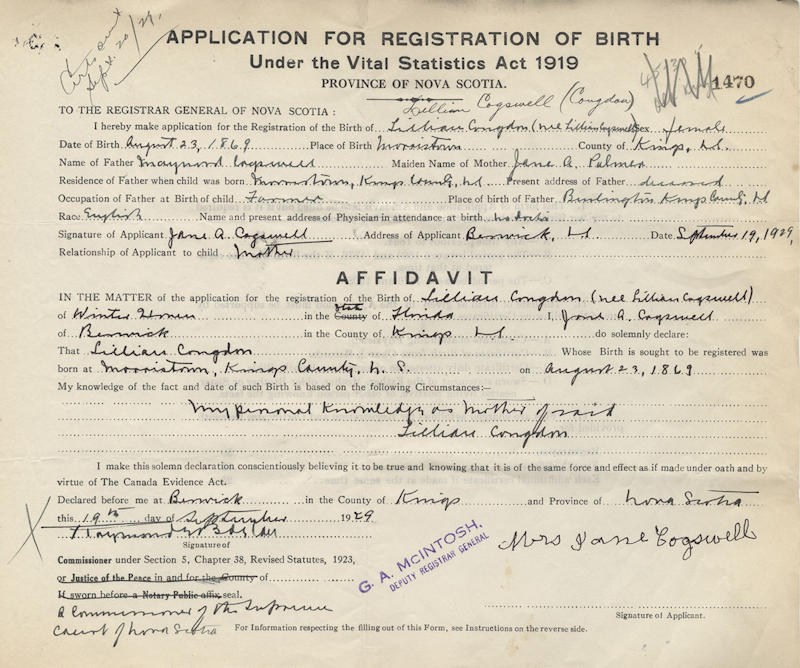 Cert sent
Sept. 20/29.
APPLICATION FOR REGISTRATION OF BIRTH
Under the Vital Statistics Act 1919
PROVINCE OF NOVA SCOTIA.
1470
Lillian Cogswell (Congdon)
TO THE REGISTRAR GENERAL OF NOVA SCOTIA :
I hereby make application for the Registration of the Birth of Lillian Congdon (nee Lillian Cogswell) Sex female
Date of Birth August 23, 1869 Place of Birth Morristown County of Kings, N.S.
Name of Father Maynard Cogswell Maiden Name of Mother Jane A. Palmer
Residence of Father when child was born Morristown, Kings County, N.S. Present address of Father deceased
Occupation of Father at Birth of child Farmer Place of birth of Father Burlington Kings County, N.S
Race English Name and present address of Physician in attendance at birth no doctor
Signature of Applicant Jane A. Cogswell Address of Applicant Berwick, N.S Date September 19, 1929,
Relationship of Applicant to child Mother
AFFIDAVIT
IN THE MATTER of the application for the registration of the Birth of Lillian Congdon (nee Lillian Cogswell)
of Winter Haven in the County State of Florida I, Jane A. Cogswell
of Berwick in the County of Kings N.S. do solemnly declare:
That Lillian Congdon Whose Birth is sought to be registered was
born at Morristown, Kings County, N. S. on August 23, 1869
My knowledge of the fact and date of such Birth is based on the following Circumstances:—
My personal knowledge as Mother of said
Lillian Congdon
I make this solemn declaration conscientiously believing it to be true and knowing that it is of the same force and effect as if made under oath and by
virtue of The Canada Evidence Act.
Declared before me at Berwick in the County of Kings and Province of Nova Scotia
this 19th day of September 1929
Raymond
Mrs Jane Cogswell
Signature of
Commissioner under Section 5, Chapter 38, Revised Statutes, 1923,
or Justice of the Peace in and for the County of
If sworn before a Notary Public affix seal.
G. A. MCINTOSH,
DEPUTY REGISTRAR GENERAL
A Commissioner of the Supreme
Court of Nova Scotia
Signature of Applicant.
For Information respecting the filling out of this Form, see Instructions on the reverse side.